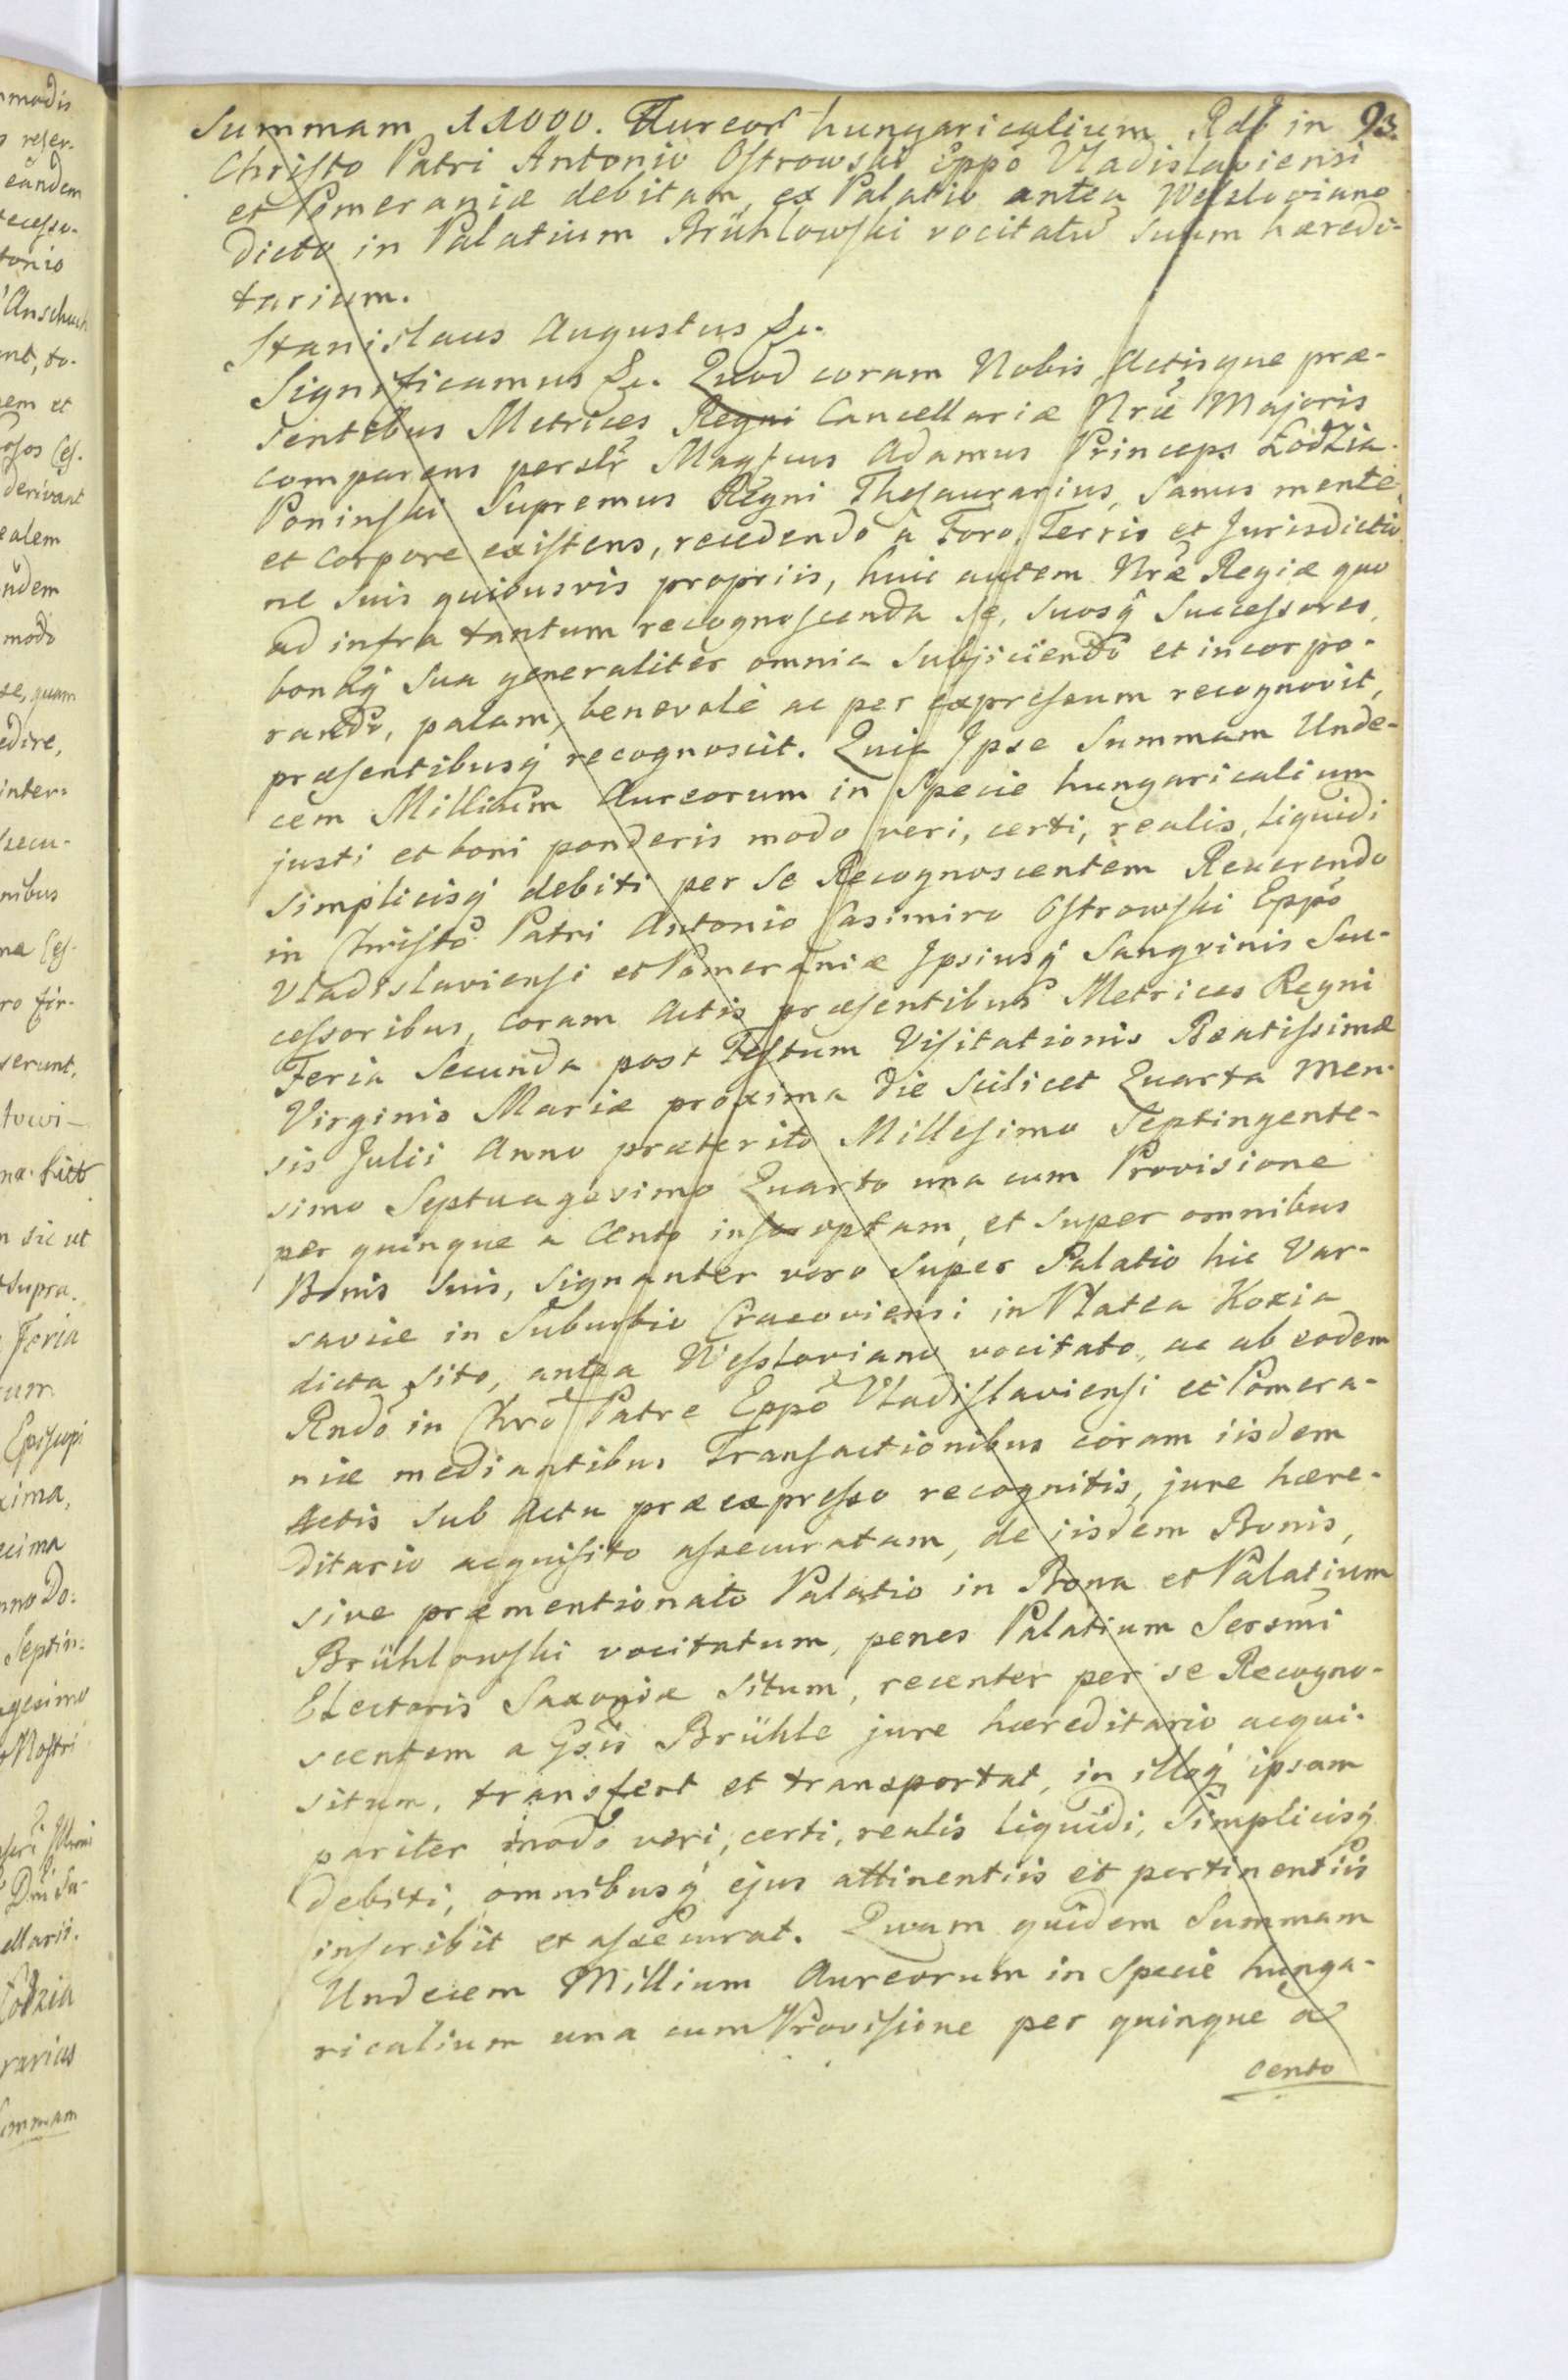 93.
Summam 11000. Aureor hungaricalium Rdo in
Christo Patri Antonio Ostrowski Eppo Vladislaviensi
et Pomeraniæ debitam, ex Palatio antea Wesloviano
dicto in Palatium Brühlowski vocitatu suum hæredi-
tarium.
Stanislaus Augustus &c.
Significamus &c. Quod coram Nobis Actisque præ-
sentibus Metrices Regni Cancellariæ Nræ Majoris
comparens perslr Magfcus Adamus Princeps Łodzia
Poninski Supremus Regni Thesaurarius, sanus mente
et corpore existens, recedendo à Foro, Terris et Jurisdictio
ne suis quibusvis propriis, huic autem Nræ Regiæ quo
ad infra tantum recognoscenda se, suosq successores,
bonaq sua generaliter omnia subjiciendo et incorpo-
rando, palam, benevolè ac per expressum recognovit,
præsentibusq recognoscit. Quia Ipse Summam Unde-
cem Millium Aureorum in Specie hungaricalium
justi et boni ponderis modo veri, certi, realis, liquidi
simplicisq debiti per se Recognoscentem Reverendo
in Christo Patri Antonio Casimiro Ostrowski Eppo
Vladislaviensi et Pomeraniæ Ipsiusq Sangvinis Suc-
cessoribus, coram Actis præsentibus Metrices Regni
Feria Secunda post Festum Visitationis Beatissimæ
Virginis Mariæ proxima die scilicet Quarta men-
sis Julii Anno præterito Millesimo Septingente-
simo Septuagesimo Quarto una cum Provisione
per quinque a Cento inscroptam, et super omnibus
Bonis suis, signanter vero super Palatio hic Var-
saviæ in Suburbio Cracoviensi in Platea Kozia
dicta sito, antea Wessloviano vocitato, ac ab eodem
Rndo in Chro Patre Eppo Vladislaviensi et Pomera-
niæ mediantibus Transactionibus coram iisdem
Actis sub Actu præexpresso recognitis, jure hære-
ditario acquisito assecuratam, de iisdem Bonis,
sive præmentionato Palatio in Bona et Palatium
Brühlowski vocitatum, penes Palatium Sersmi
Electoris Saxoniæ situm, recenter per se Recogno-
scentem a Gsis Brühle jure hæreditario acqui-
situm, transfert et transportat, in illaq ipsam
pariter modo veri, certi, realis liquidi, simplicisq
debiti, omnibusq ejus attinentiis et pertinentiis
inscribit et assecurat. Quam quidem Summam
Undecem Millium Aureorum in Specie hunga-
ricalium una cum Provisione per quinque a
cento